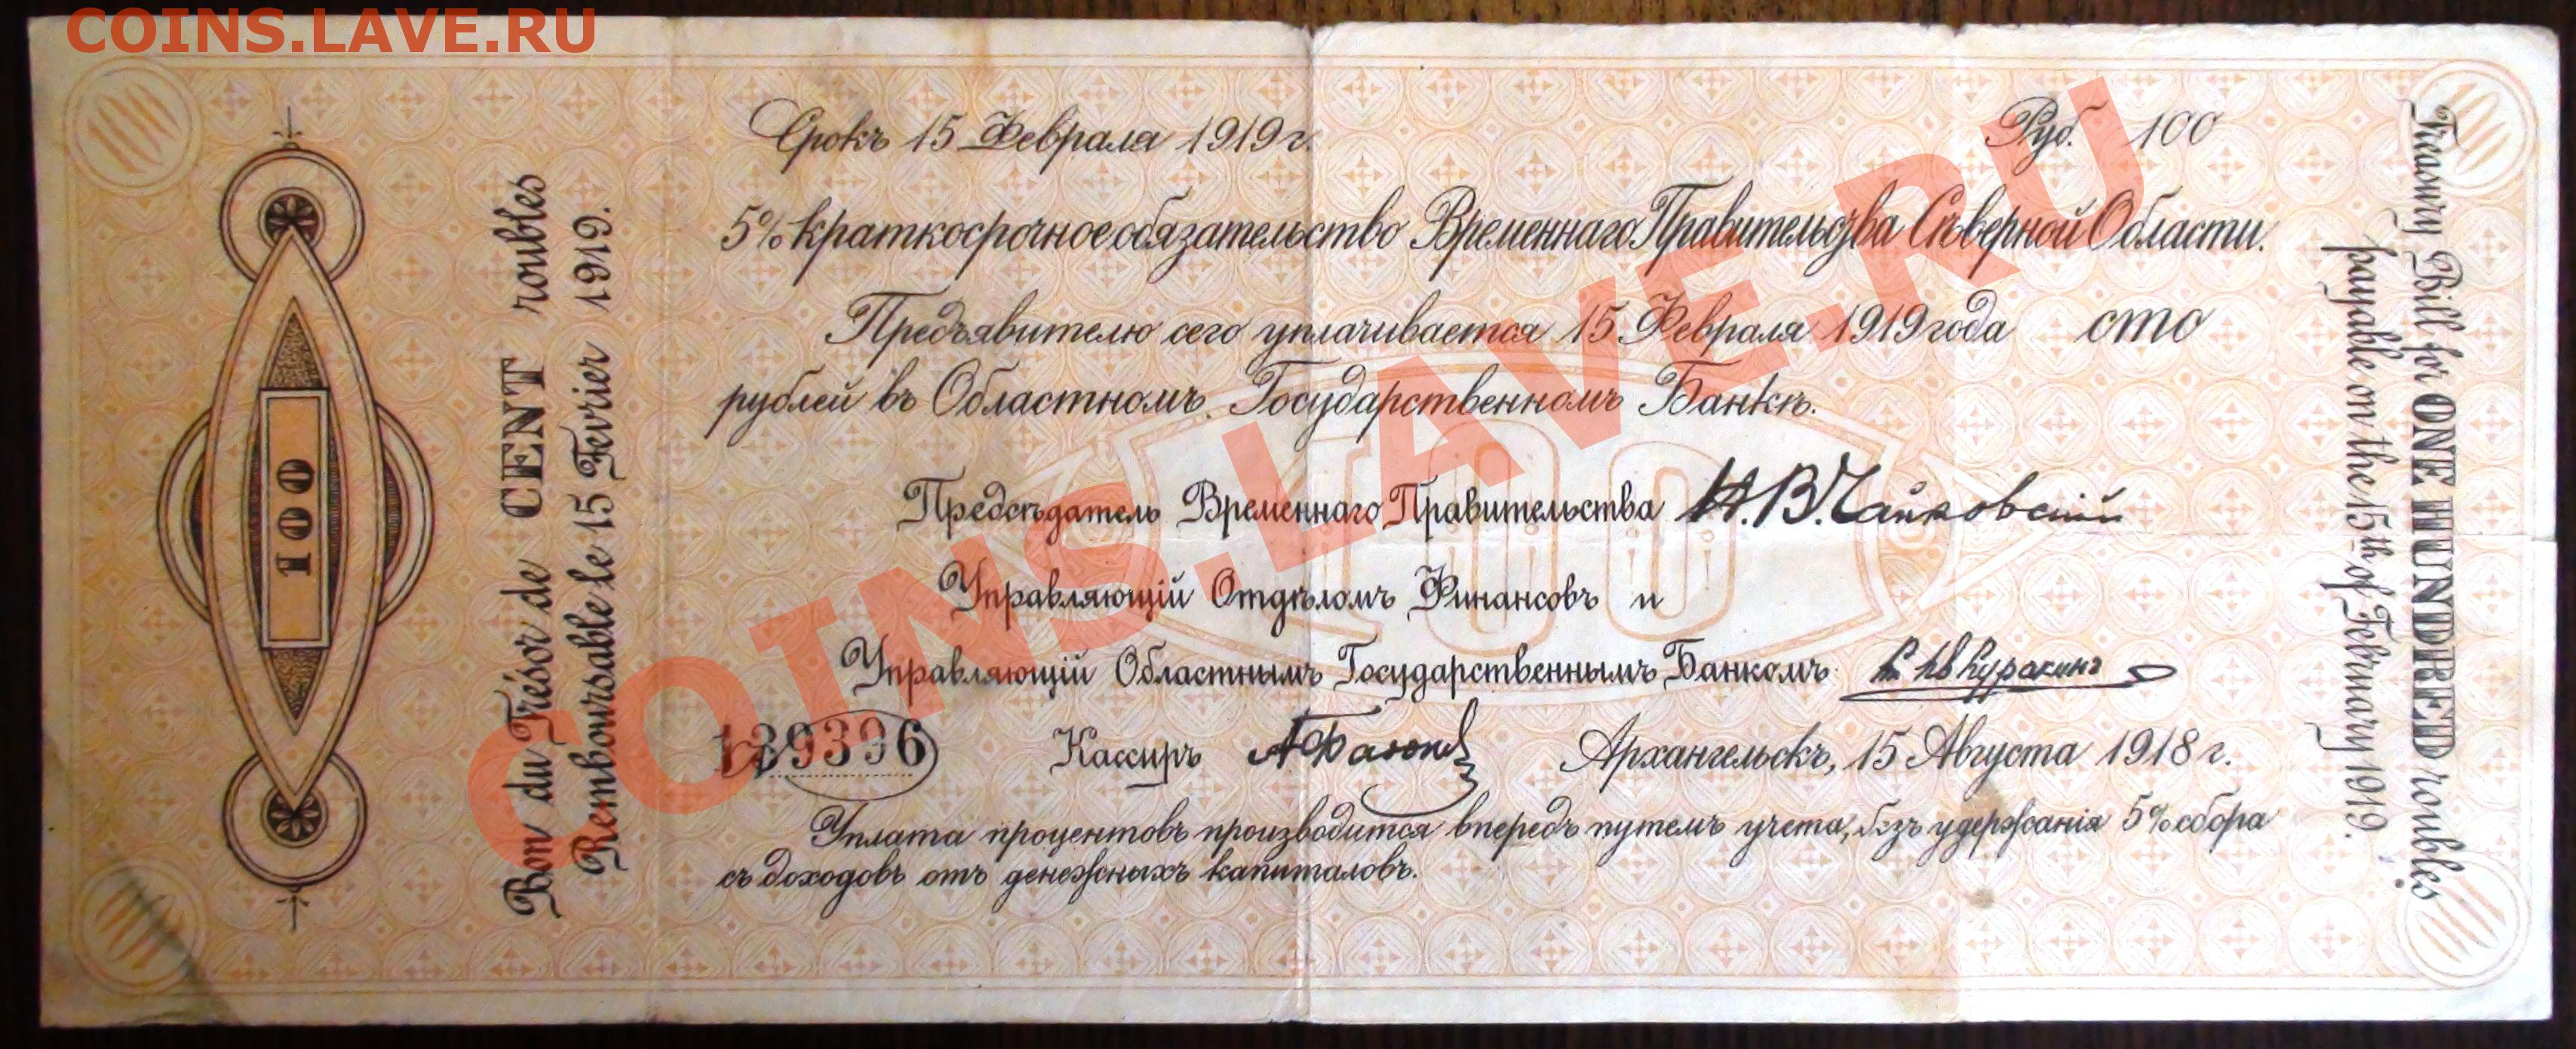 COINS.LAVE.RU
Срокъ 15 Февраля 1919 г.
Руб. 100
5% краткосрочное обязательство Временнаго Правительства Сѣверной Области.
Предъявителю сего уплачивается 15 Февраля 1919 года сто
рублей въ Областномъ Государственномъ Банкѣ.
Предсѣдатель Временнаго Правительства Н.В.Чайковскій
Управляющій Отдѣломъ Финансовъ и
Управляющій Областнымъ Государственнымъ Банкомъ Куракинъ
139396
Кассиръ
Архангельскъ, 15 Августа 1918 г.
Уплата процентовъ производится впередъ путемъ учета, безъ удержанія 5% сбора
съ доходовъ отъ денежныхъ капиталовъ.
100
Bon du Trésor de CENT roubles
Remboursable le 15 Fevrier 1919.
Treasury Bill for ONE HUNDRED roubles
payable on the 15th of February 1919.
100
COINS.LAVE.RU